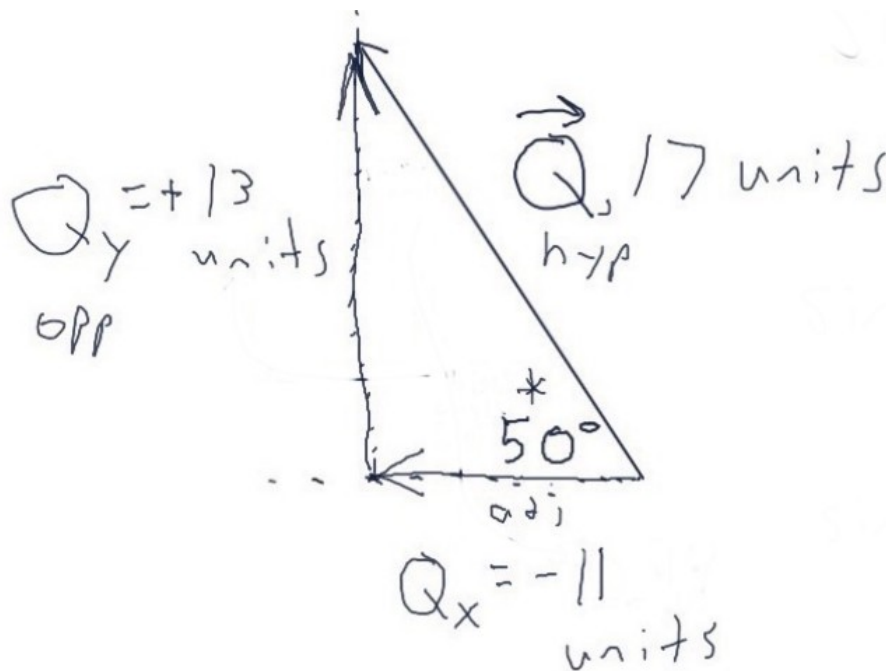 Qy = + 13
units
opp
Q, 17 units
hyp
*
50°
adj
Qx = - 11
units